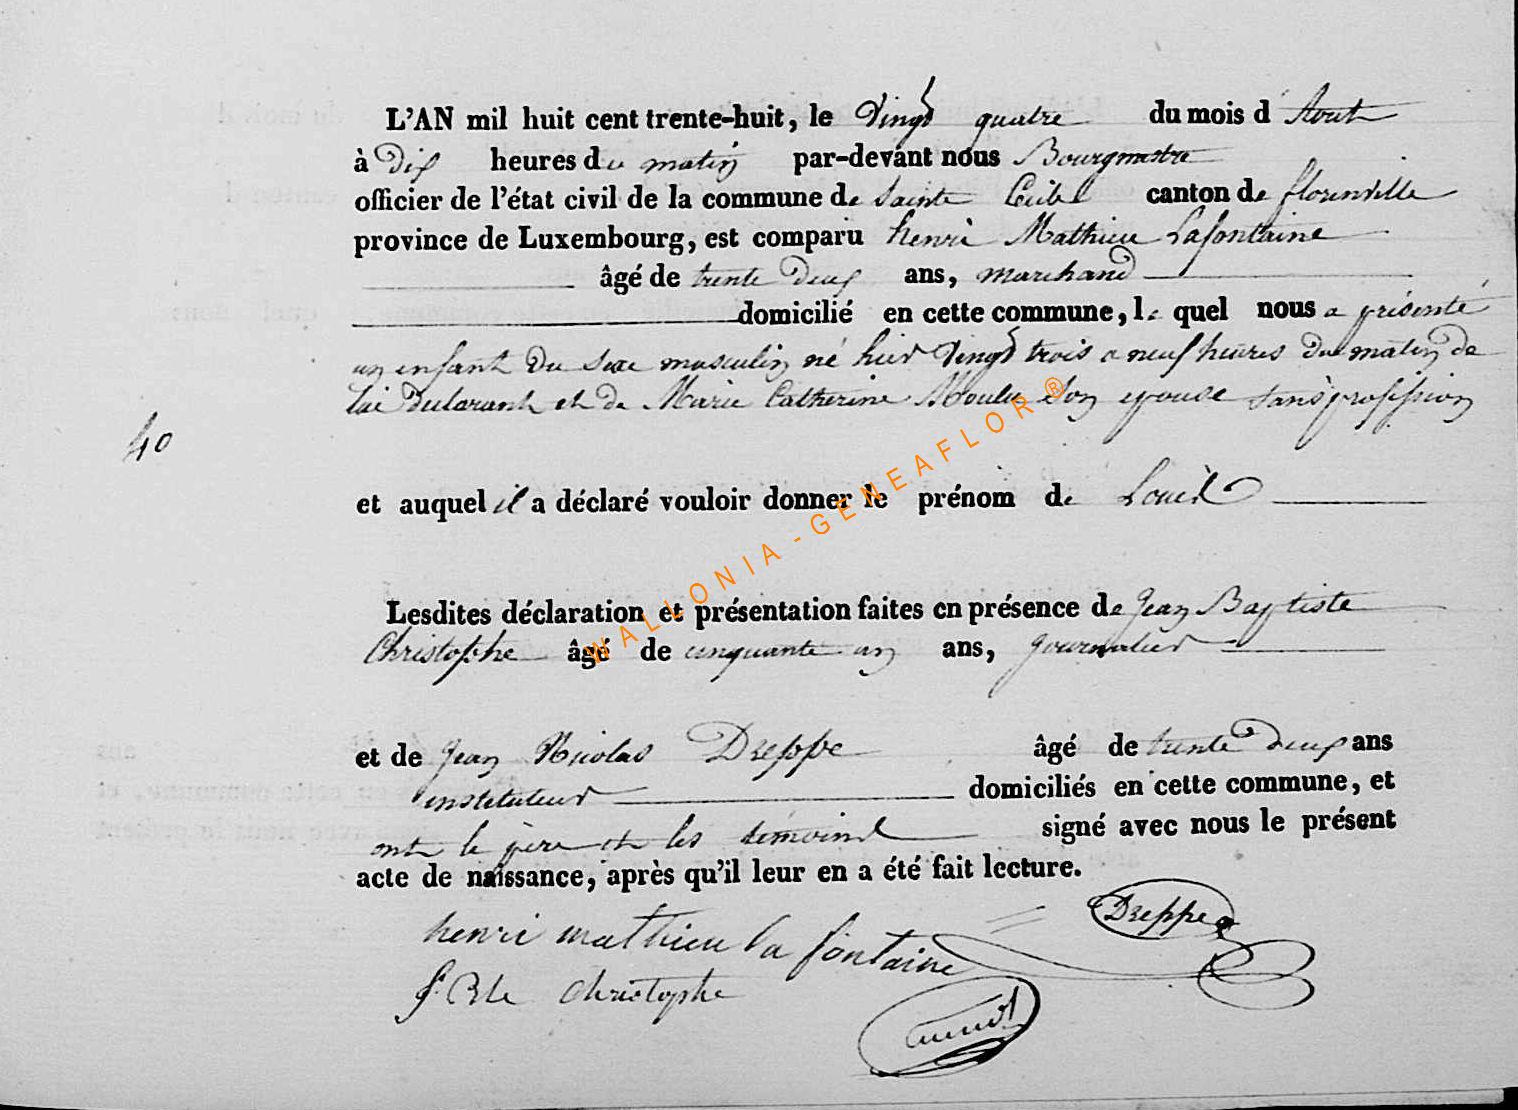 L'AN mil huit cent trente-huit, le vingt quatre du mois d'Aout
à Dix heures du matin par-devant nous Bourgmestre
officier de l'état civil de la commune de Sainte Cécile canton de florenville
province de Luxembourg, est comparu henri Mathieu Lafontaine
âgé de trente deux ans, marchand
domicilié en cette commune, lequel nous a présenté
un enfant du sexe masculin né hier vingt trois a neuf heures du matin de
lui Déclarant et de Marie Catherine Moulu son epouse sans profession
40
et auquel il a déclaré vouloir donner le prénom de Louis
Lesdites déclaration et présentation faites en présence de Jean Baptiste
Christophe âgé de cinquante un ans, journalier
et de Jean Nicolas Dreppe âgé de trente deux ans
instituteur domiciliés en cette commune, et
ont le père et les témoins signé avec nous le présent
acte de naissance, après qu'il leur en a été fait lecture.
Dreppe
henri mathieu la fontaine
J. Bte christophe
WALLONIA-GENEAFLOR®